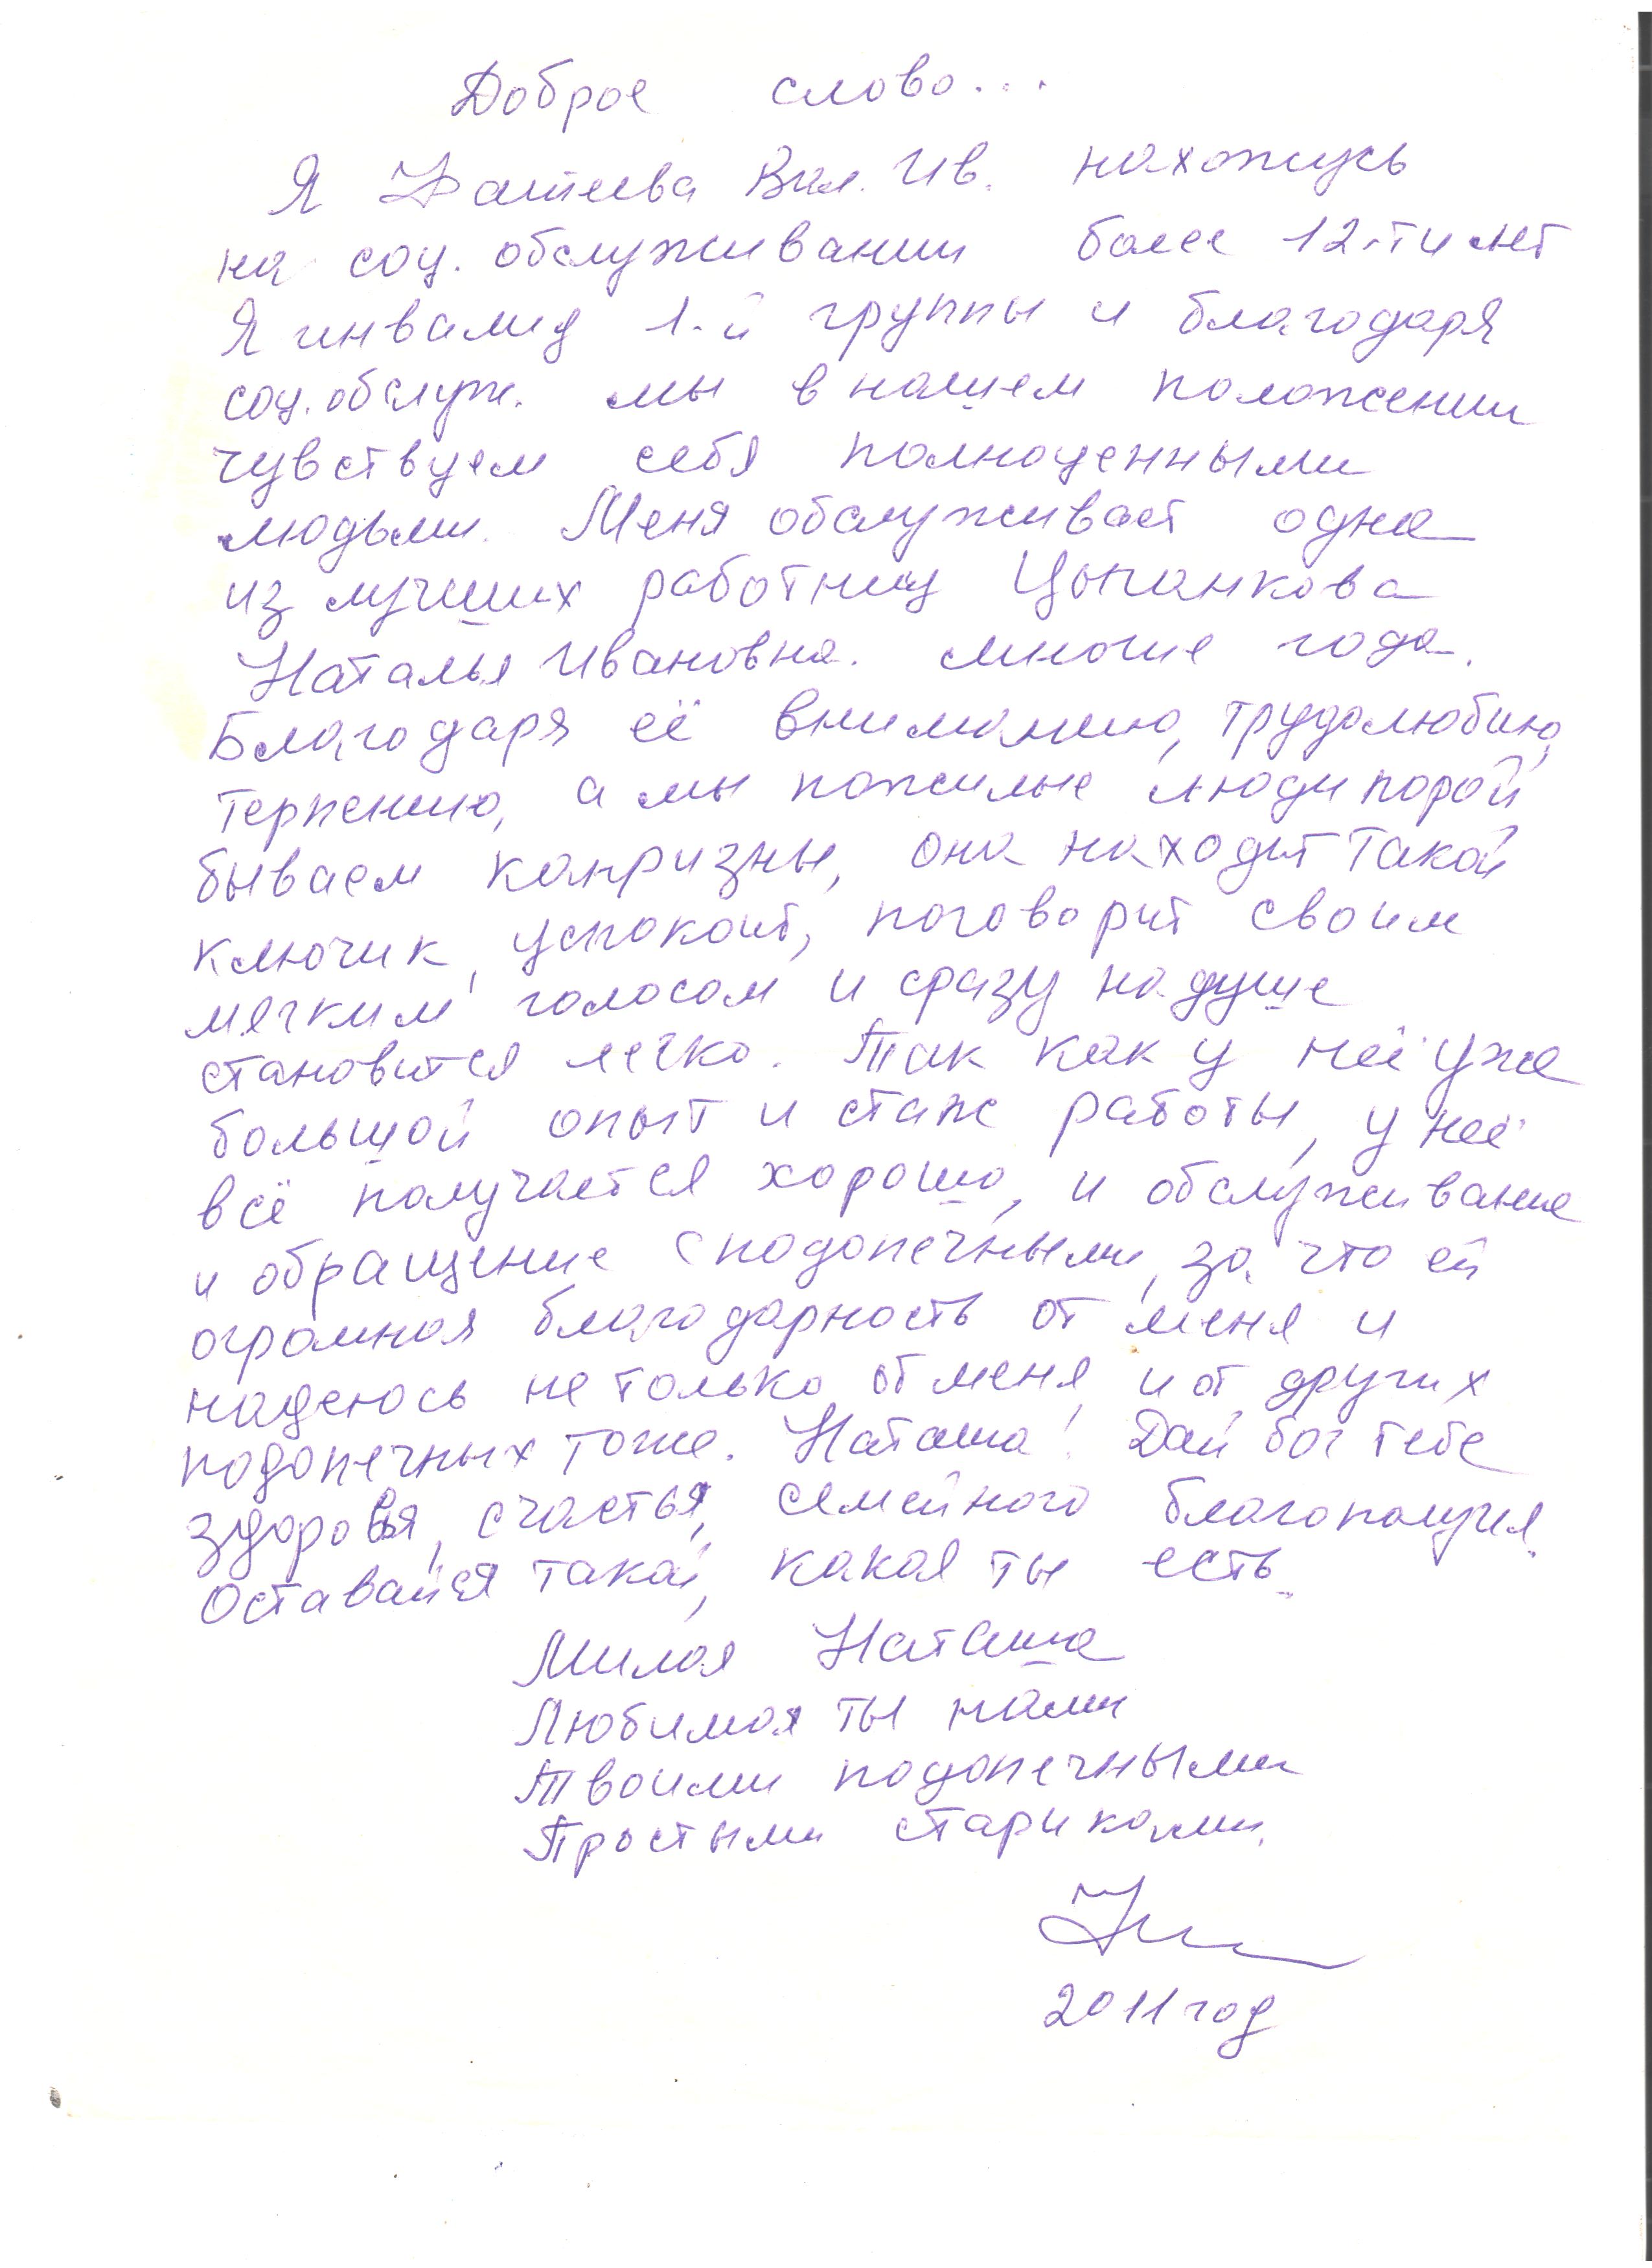 Доброе слово...
Я Фатеева Вал. Ив. нахожусь
на соц. обслуживании более 12-ти лет
Я инвалид 1-й группы и благодаря
соц. обслуж. мы в нашем положении
чувствуем себя полноценными
людьми. Меня обслуживает одна
из лучших работниц Цыпанкова
Наталья Ивановна. многие года.
Благодаря её вниманию, трудолюбию,
терпению, а мы пожилые люди порой
бываем капризны, она находит такой
ключик, успокоит, поговорит своим
мягким голосом и сразу на душе
становится легко. Так как у неё уже
большой опыт и стаж работы, у неё
всё получается хорошо, и обслуживание
и обращение с подопечными, за что ей
огромная благодарность от меня и
надеюсь не только от меня, и от других
подопечных тоже. Наташа! Дай бог тебе
здоровья, счастья, семейного благополучия.
Оставайся такой, какая ты есть.
Милая Наташа
Любимая ты нами
Твоими подопечными
Простыми стариками.
2011 год